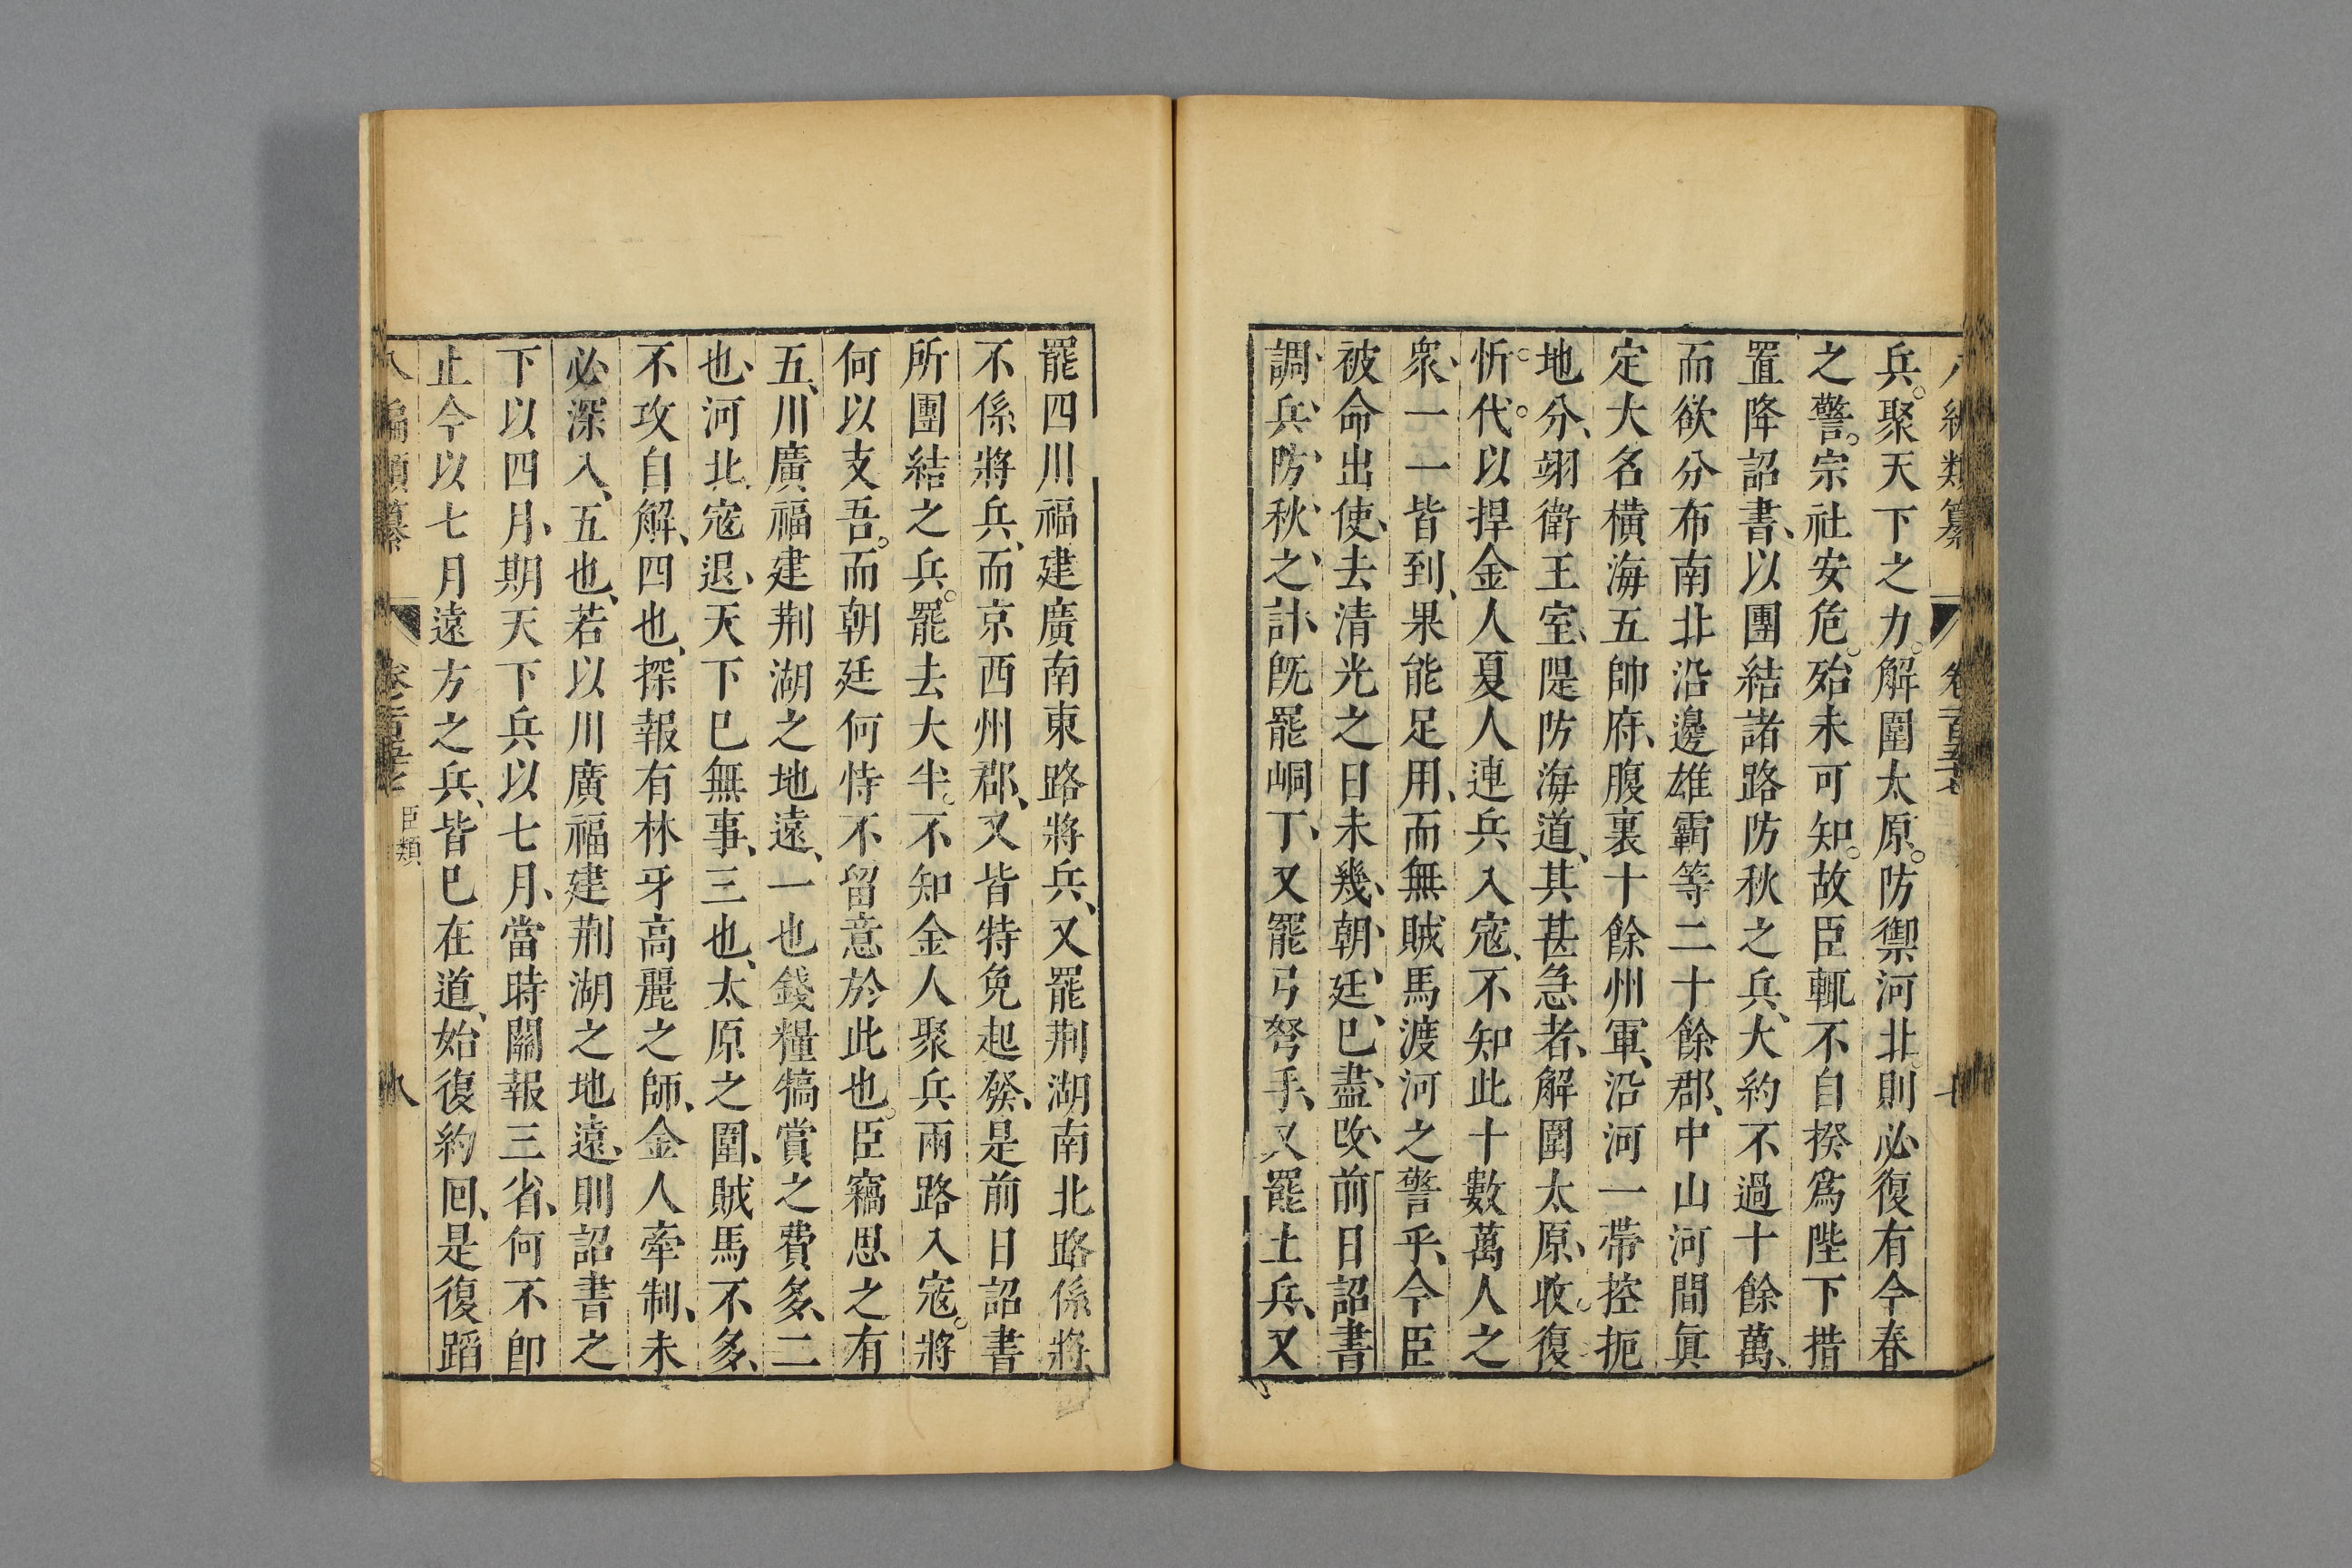 兵。聚天下之力。解圍太原。防禦河北。則必復有今春
之警。宗社安危。殆未可知。故臣輒不自揆爲陛下措
置降詔書、以團結諸路防秋之兵、大約不過十餘萬、
而欲分布南北沿邊雄霸等二十餘郡、中山河間眞
定大名橫海五帥府、腹裏十餘州軍、沿河一帶控扼
地分、翊衛王室、隄防海道、其甚急者、解圍太原、收。復
忻。代。以捍金人夏人連兵入寇、不知此十數萬人之
衆、一一皆到、果能足用、而無賊馬渡河之警乎、今臣
被命出使、去清光之日未幾、朝、廷、巳、盡、改、前日詔書
調、兵、防、秋、之、計、旣罷峒丁、又罷弓弩手、又罷土兵、又
罷四川福建廣南東路將兵、又罷荆湖南北路係將
不係將兵、而京西州郡、又皆特免起發、是前日詔書
所團結之兵。罷去大半。不知金人聚兵兩路入寇。將
何以支吾。而朝廷何恃不留意於此也。臣竊思之有
五、川廣福建荆湖之地遠、一也錢糧犒賞之費多、二
也、河北寇退、天下巳無事、三也、太原之圍、賊馬不多、
不攻自解、四也、探報有林牙高麗之師、金人牽制、未
必深入、五也、若以川廣福建荆湖之地遠、則詔書之
下以四月、期天下兵以七月、當時關報三省、何不卽
止今以七月遠方之兵、皆巳在道、始復約回、是復蹈
八編類纂 臣類 八